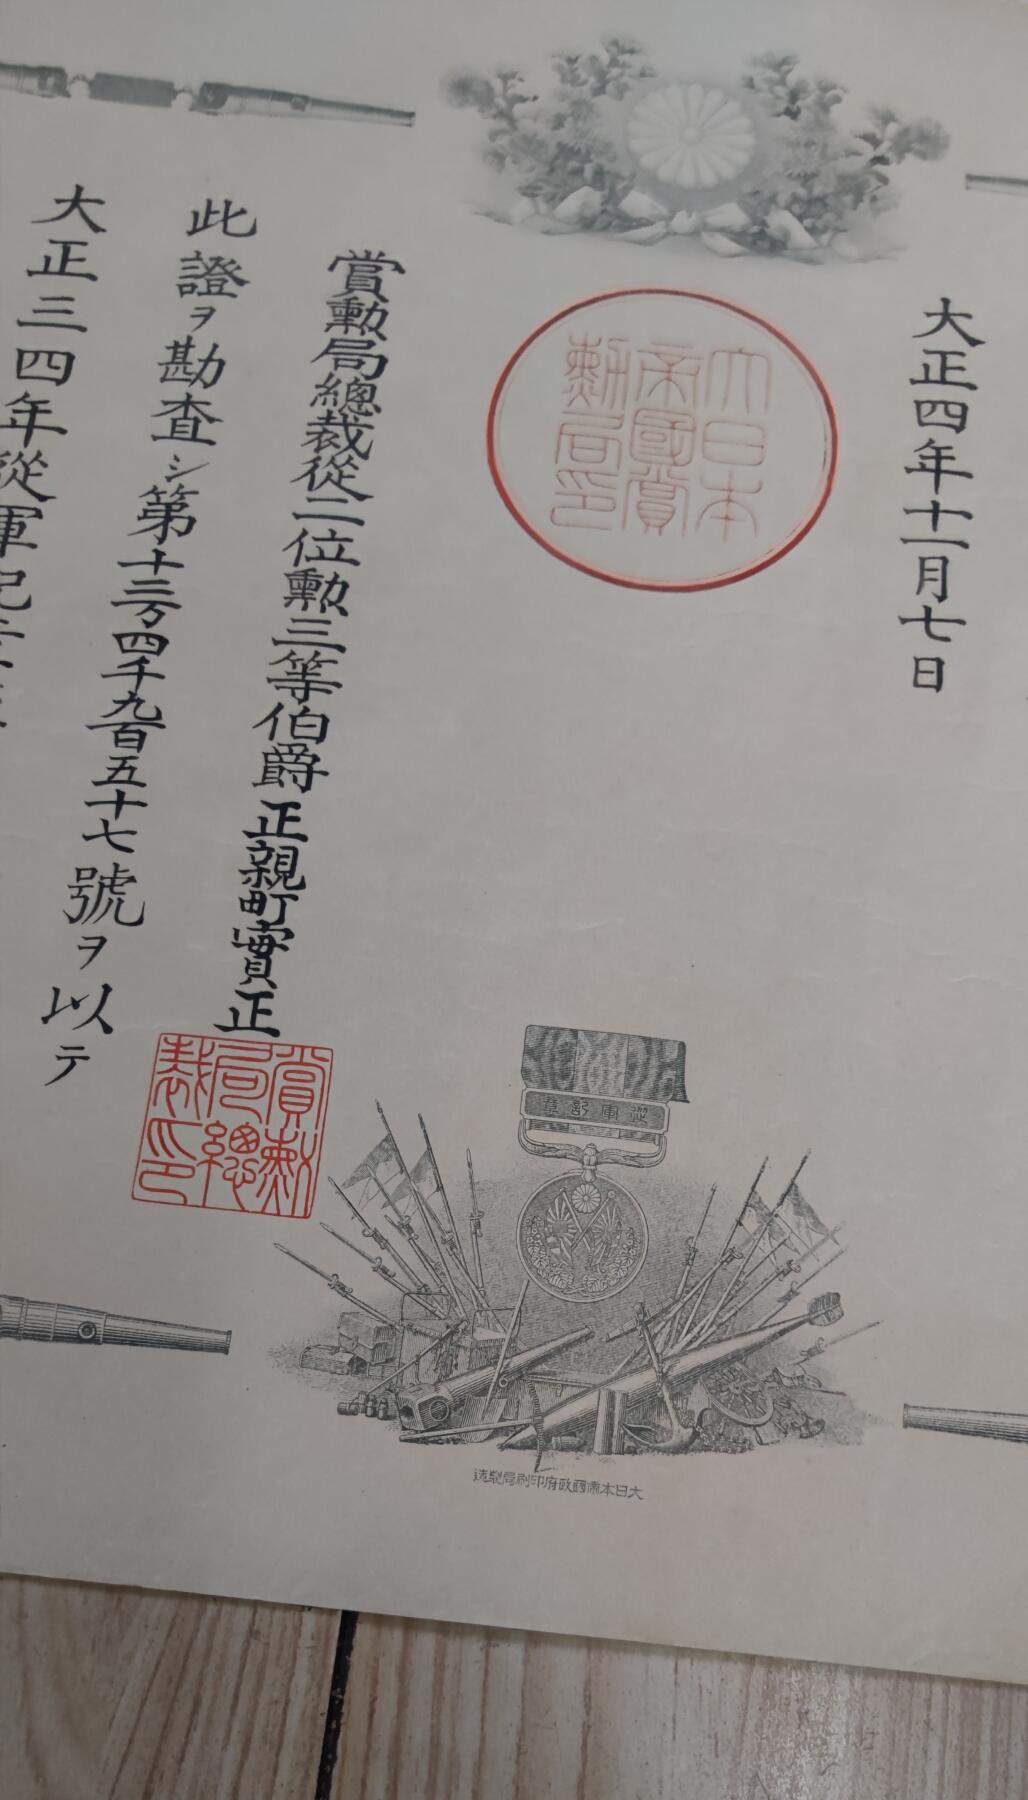 大正四年十一月七日
大日本
帝國賞
勲局印
賞勲局總裁從二位勲三等伯爵正親町實正
賞勲
局總
裁印
此證ヲ勘査シ第十三万四千九百五十七號ヲ以テ
大正三四年從軍記
從軍記章
大日本帝國政府印刷局製造